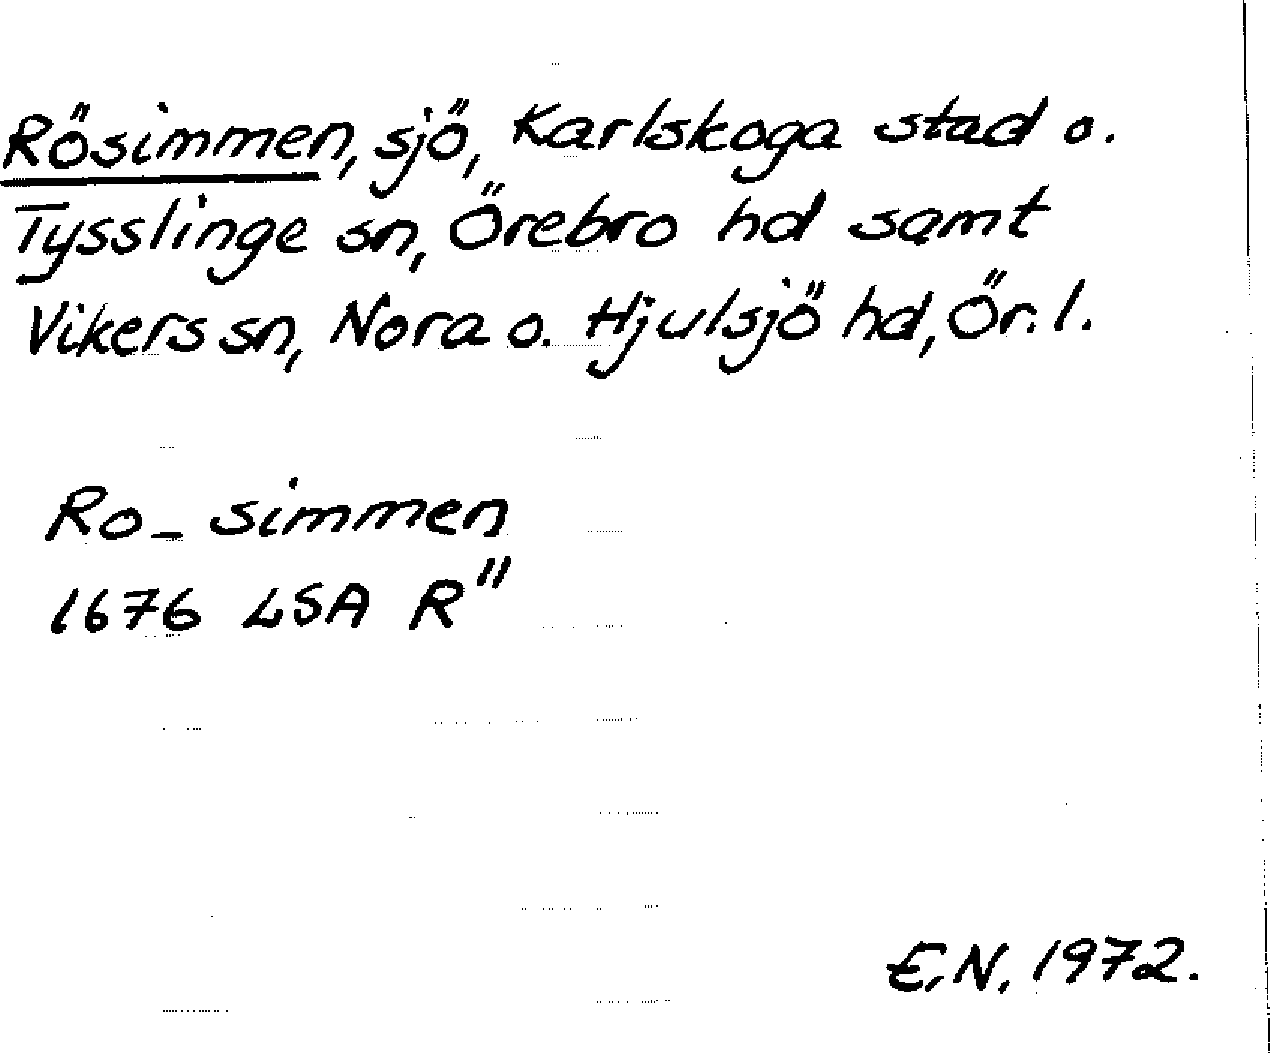 Rösimmen, sjö, Karlskoga stad o.
Tysslinge sn, Örebro hd samt
Vikers sn, Nora o. Hjulsjö hd, Ör. l.
Ro- simmen
1676 LSA R"
E.N. 1972.